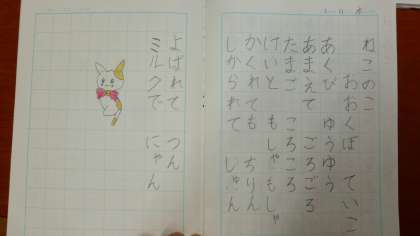 ねこのこ
おおくぼ ていこ
あくび ゆうゆう
あまえて ごろごろ
たまご ころころ
けいと もしゃもしゃ
かくれても ちりん
しかられて しゅん
よばれて つん
ミルクで にゃん